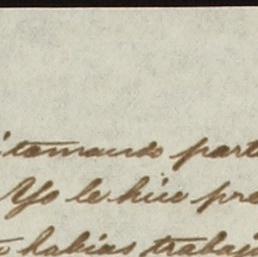 tomando part
Yo le hice pre
habias trabaj